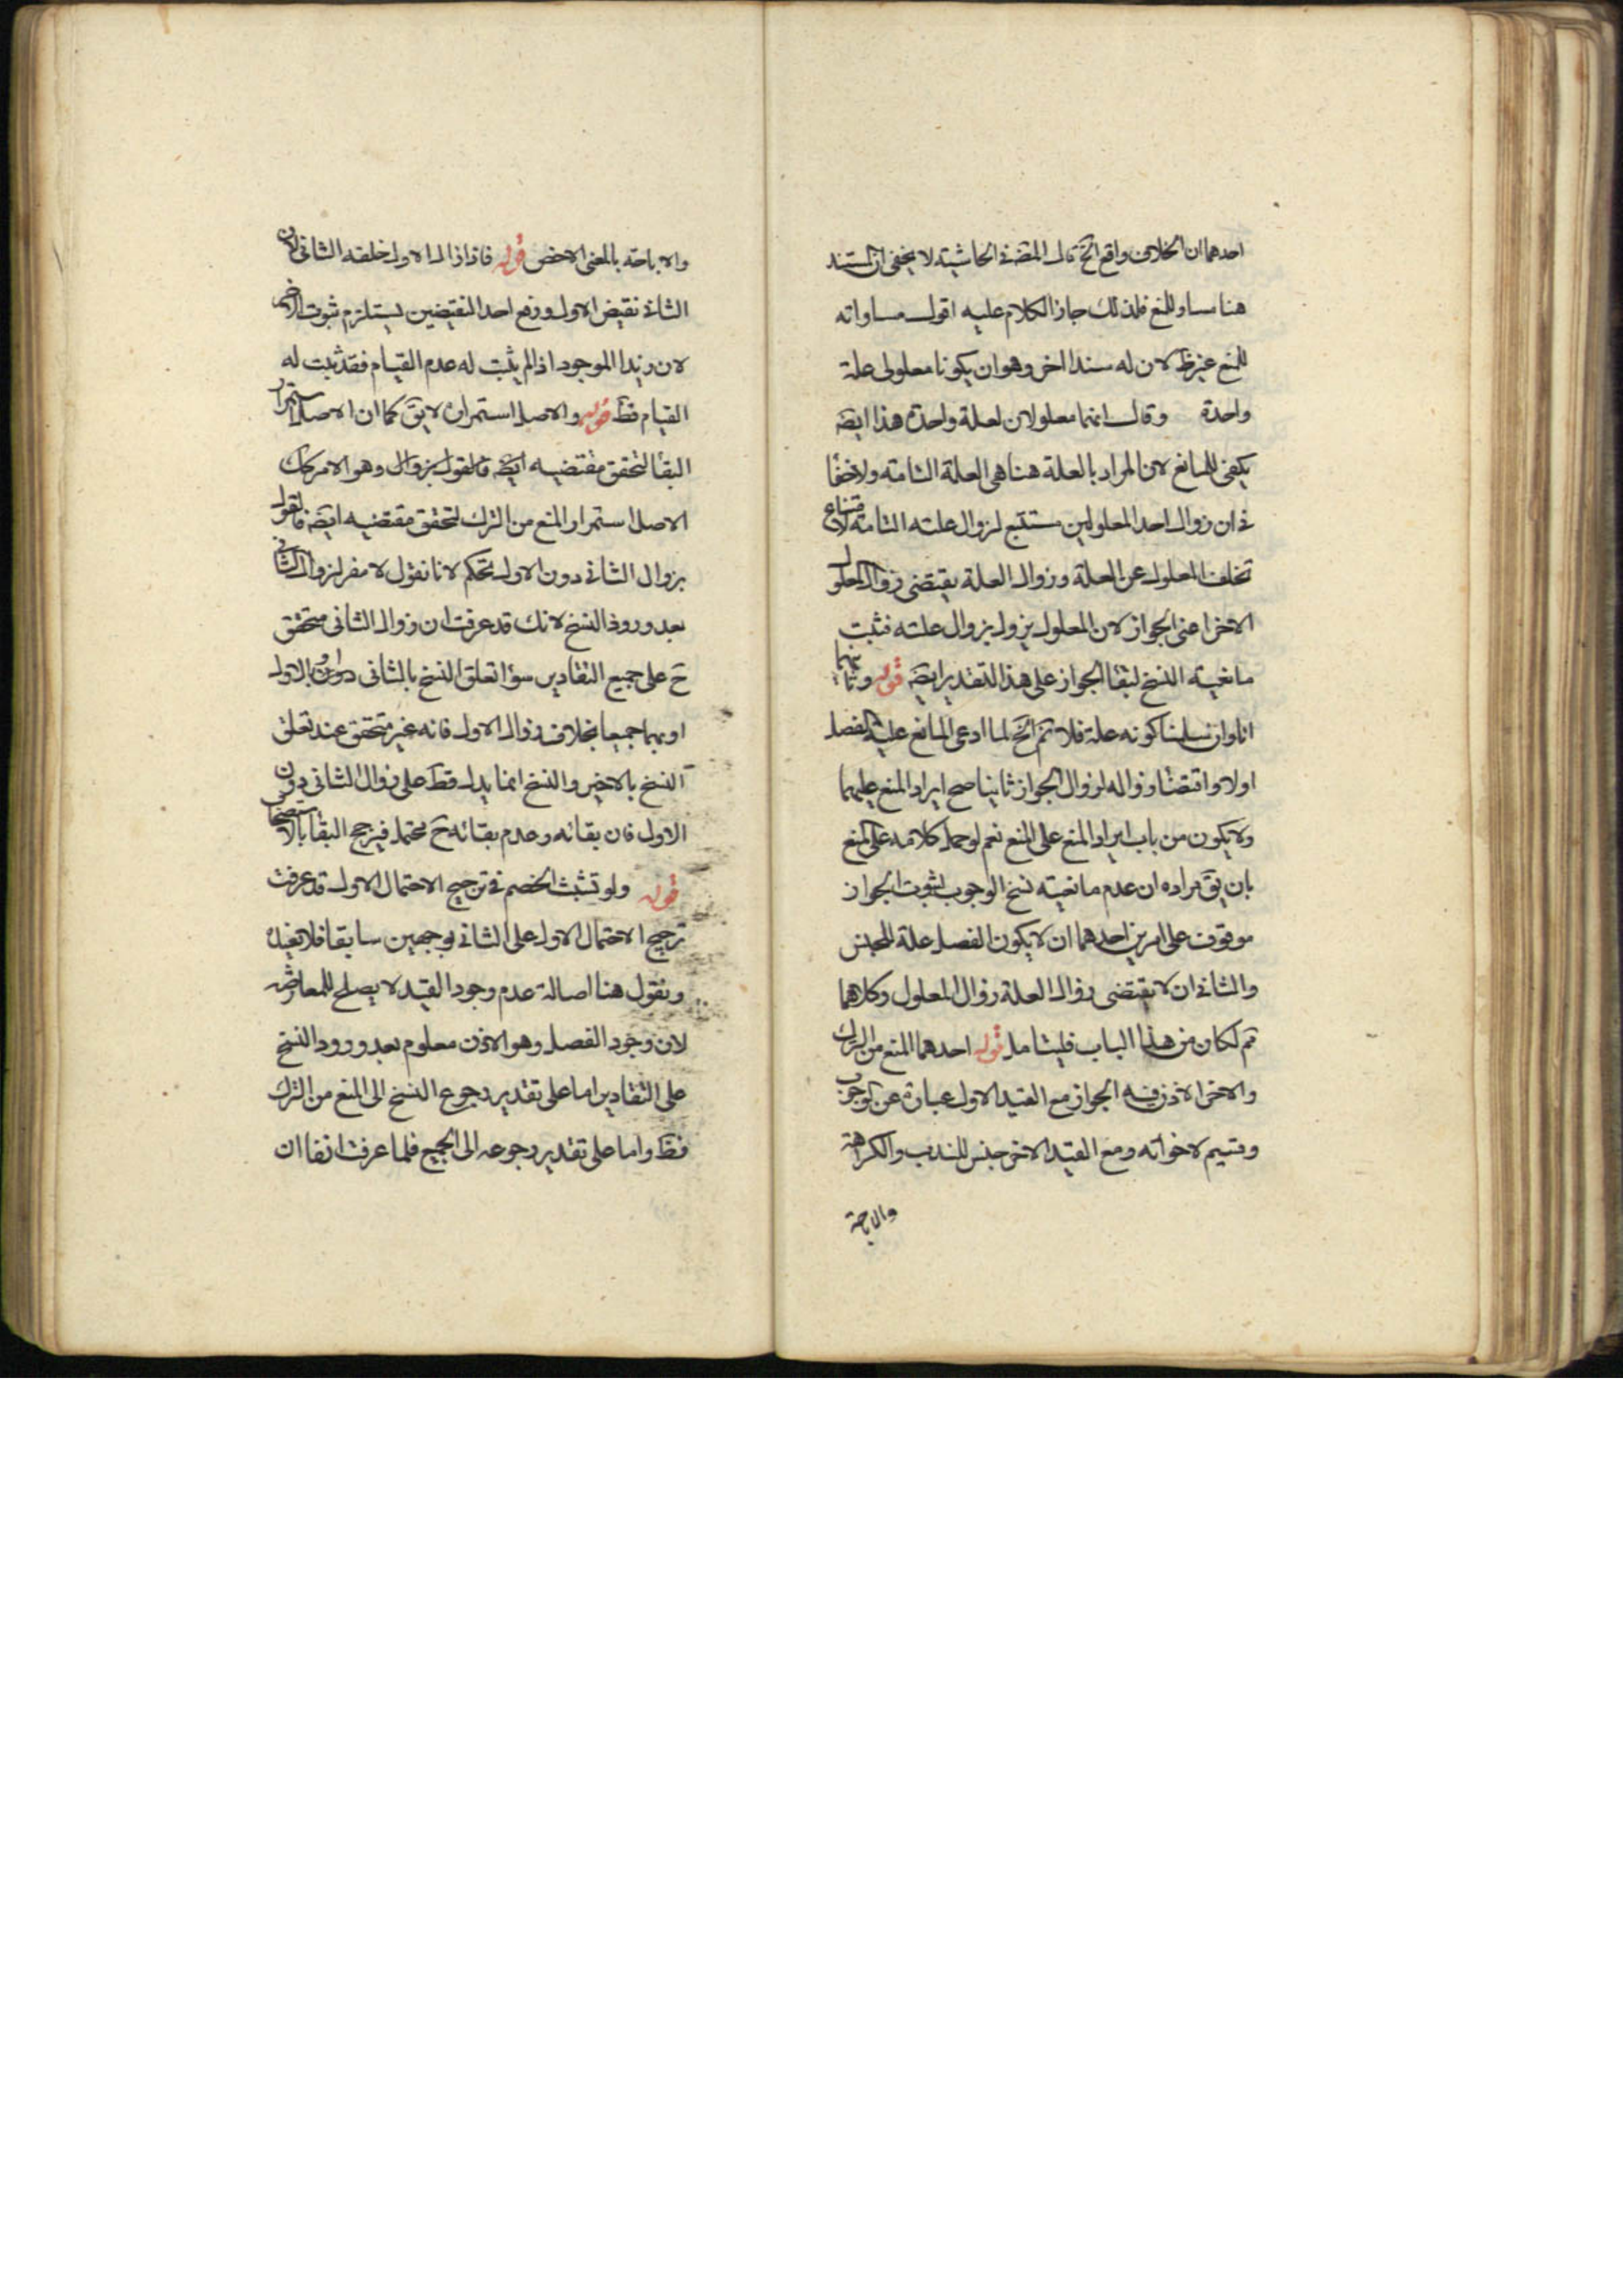 احدهما ان الخلاف واقع الخ قال المصه فى الحاشية لا يخفى ان السند
هنا مساو للمنع فلذلك جاز الكلام عليه اقول مساواته
للمنع غير ظ لان له سندا اخر وهو ان يكونا معلولى علة
واحدة وقال انهما معلولان لعلة واحدة هذا ايضَ
يكفى للمانع لان المراد بالعلة هنا هى العلة التامه ولا خفأ
فى ان زوال احد المعلولين مستتبع لزوال علته التامة لامتناع
تخلف المعلول عن العلة وزوال العلة يقتضى زوال المعلول
الاخر اعنى الجواز لان المعلول يزول بزوال علته فثبت
مانعية النسخ لبقأ الجواز على هذا التقدير ايضَ قوله وثانيهما
انا وان سلمنا كونه علة فلا تم الخ لما ادعى المانع علية الفصل
اولا واقتضأ زواله لزوال الجواز ثانيا صح ايراد المنع عليهما
ولا يكون من باب ايراد المنع على المنع نعم لو حمل كلامه على المنع
بان يقَ مراده ان عدم مانعية نسخ الوجوب لثبوت الجواز
موقوف على امرين احدهما ان لا يكون الفصل علة للجنس
والثانى ان لا يقتضى زوال العلة زوال المعلول وكلاهما
تم لكان من هذا الباب فليتامل قوله احدهما المنع من الترك
والاخر الاذن فيه الجواز مع القيد الاول عبارة عن الوجوب
وقسيم لاخواته ومع القيد الاخر جنس للندب والكراهة
والاباحة
والاباحة بالمعنى الاخص قوله فاذا زال الاول خلفه الثانى لان
الثانى نقيض الاول ورفع احد النقيضين يستلزم ثبوت الاخر
لان زيدا الموجود اذا لم يثبت له عدم القيام فقد ثبت له
القيام فظَ قوله والاصل استمراره لا يقَ كما ان الاصل استمرار
البقأ لتحقق مقتضيه ايضَ فالقول بزوال وهو الامر كك
الاصل استمرار المنع من الترك لتحقق مقتضيه ايضَ فالقول
بزوال الثانى دون الاول تحكم لانا نقول لا مفر لزوال الثانى
بعد ورود النسخ لانك قد عرفت ان زوال الثانى متحقق
حَ على جميع التقادير سوأ تعلق النسخ بالثانى دون الاول او بالاول
او بهما جميعا بخلاف زوال الاول فانه غير متحقق عند تعلق
النسخ بالاخير والنسخ انما يدل قطَ على زوال الثانى دون
الاول فان بقائه وعدم بقائه حَ محتمل فيرجح البقأ بالاستصحاب
قوله ولو تشبث الخصم فى ترجيح الاحتمال الاول قد عرفت
ترجيح الاحتمال الاول على الثانى بوجهين سابقا فلا نعيده
ونقول هنا اصالة عدم وجود القيد لا يصلح للمعارضه
لان وجود الفصل وهو الاذن معلوم بعد ورود النسخ
على التقادير اما على تقدير رجوع النسخ الى المنع من الترك
فظَ واما على تقدير رجوعه الى الجميع فلما عرفت انفا ان